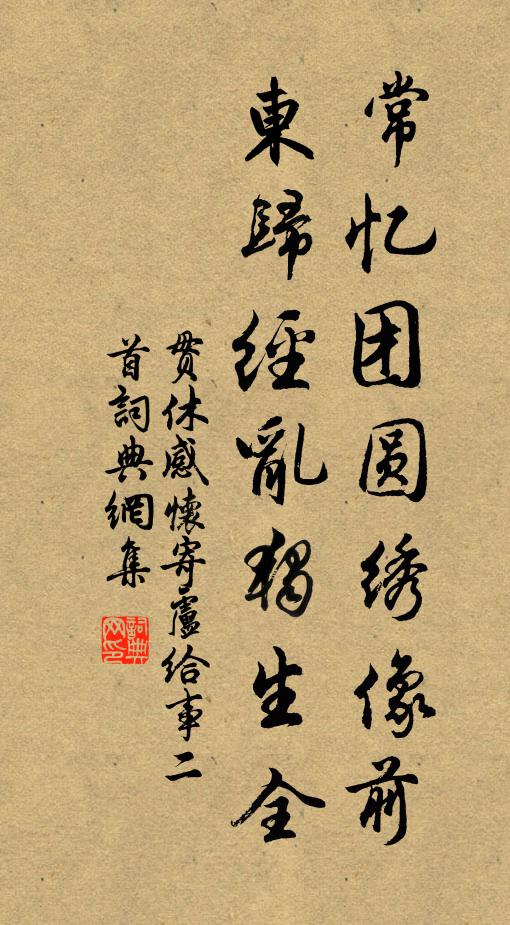 常忆团圆绣像前
東歸經亂獨生全
贯休感懷寄盧给事二
首詞典網集
詞典
网印